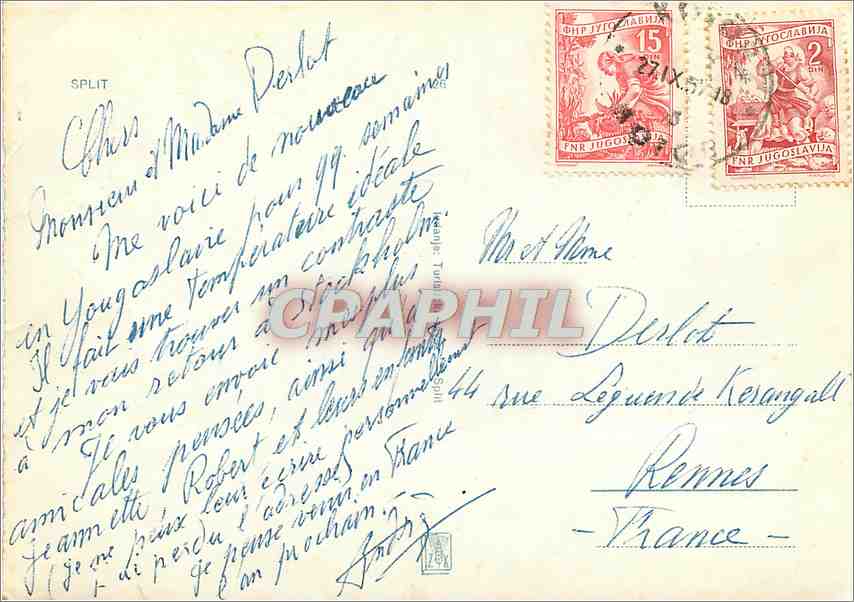 SPLIT
Chers
Monsieur et Madame Derlot
Me voici de nouveau
en Yougoslavie pour qq. semaines
Il fait une température idéale
et je vais trouver un contraste
à mon retour à Stockholm.
Je vous envoie mes plus
amicales pensées, ainsi qu'à
Jeannette, Robert et leurs enfants
(je ne peux leur écrire personnellement
j'ai perdu l'adresse)
Je pense venir en France
l'an prochain.
ФНР ЈУГОСЛАВИЈА
15
DIN
FNR JUGOSLAVIJA
ФНР ЈУГОСЛАВИЈА
2
DIN
FNR JUGOSLAVIJA
27.IX.57-18
Mr et Mme
Derlot
44 rue Leguen de Kerangall
Rennes
- France -
Split
CPAPHIL